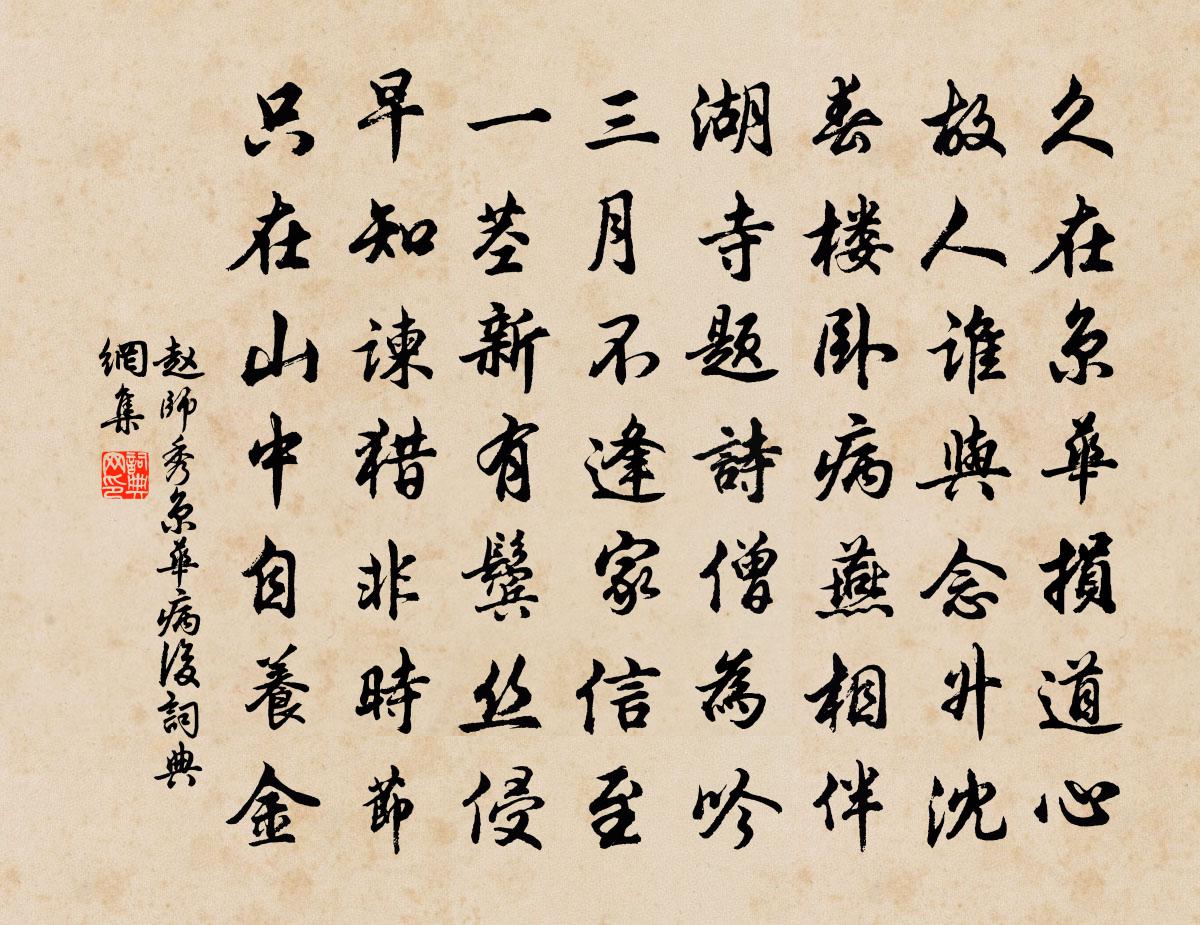 久在京華損道心
故人誰與念升沈
春楼卧病燕相伴
湖寺题詩僧為吟
三月不逢家信至
一莖新有鬓丝侵
早知諫猎非時節
只在山中自養金
赵師秀京華病後詞典
網集
詞典网印